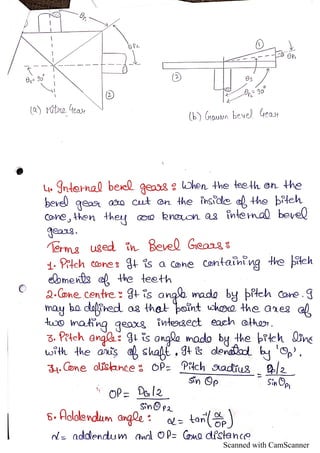 θp₁
θp₂
①
θp₁
②
θs
θp₁ = 90°
②
θp₂ = 90°
(a) Mitre Gear
(b) Crown bevel Gear
4. Internal bevel gears : When the teeth on the
bevel gear are cut on the inside of the pitch
cone, then they are known as internal bevel
gears.
Terms used in Bevel Gears :
1. Pitch cone : It is a cone containing the pitch
elements of the teeth
2. Cone centre : It is angle made by pitch cone. I
may be defined as that point where the axes of
two mating gears intersect each other.
3. Pitch angle : It is angle made by the pitch line
with the axis of shaft, It is denoted by 'Op'.
34. Cone distance : OP = Pitch radius / sin Op = Dp/2 / sinOp₁
∴ OP = DG/2 / sinOp₂
5. Addendum angle : α = tan⁻¹(a/OP)
α = addendum and OP = Cone distance
Scanned with CamScanner